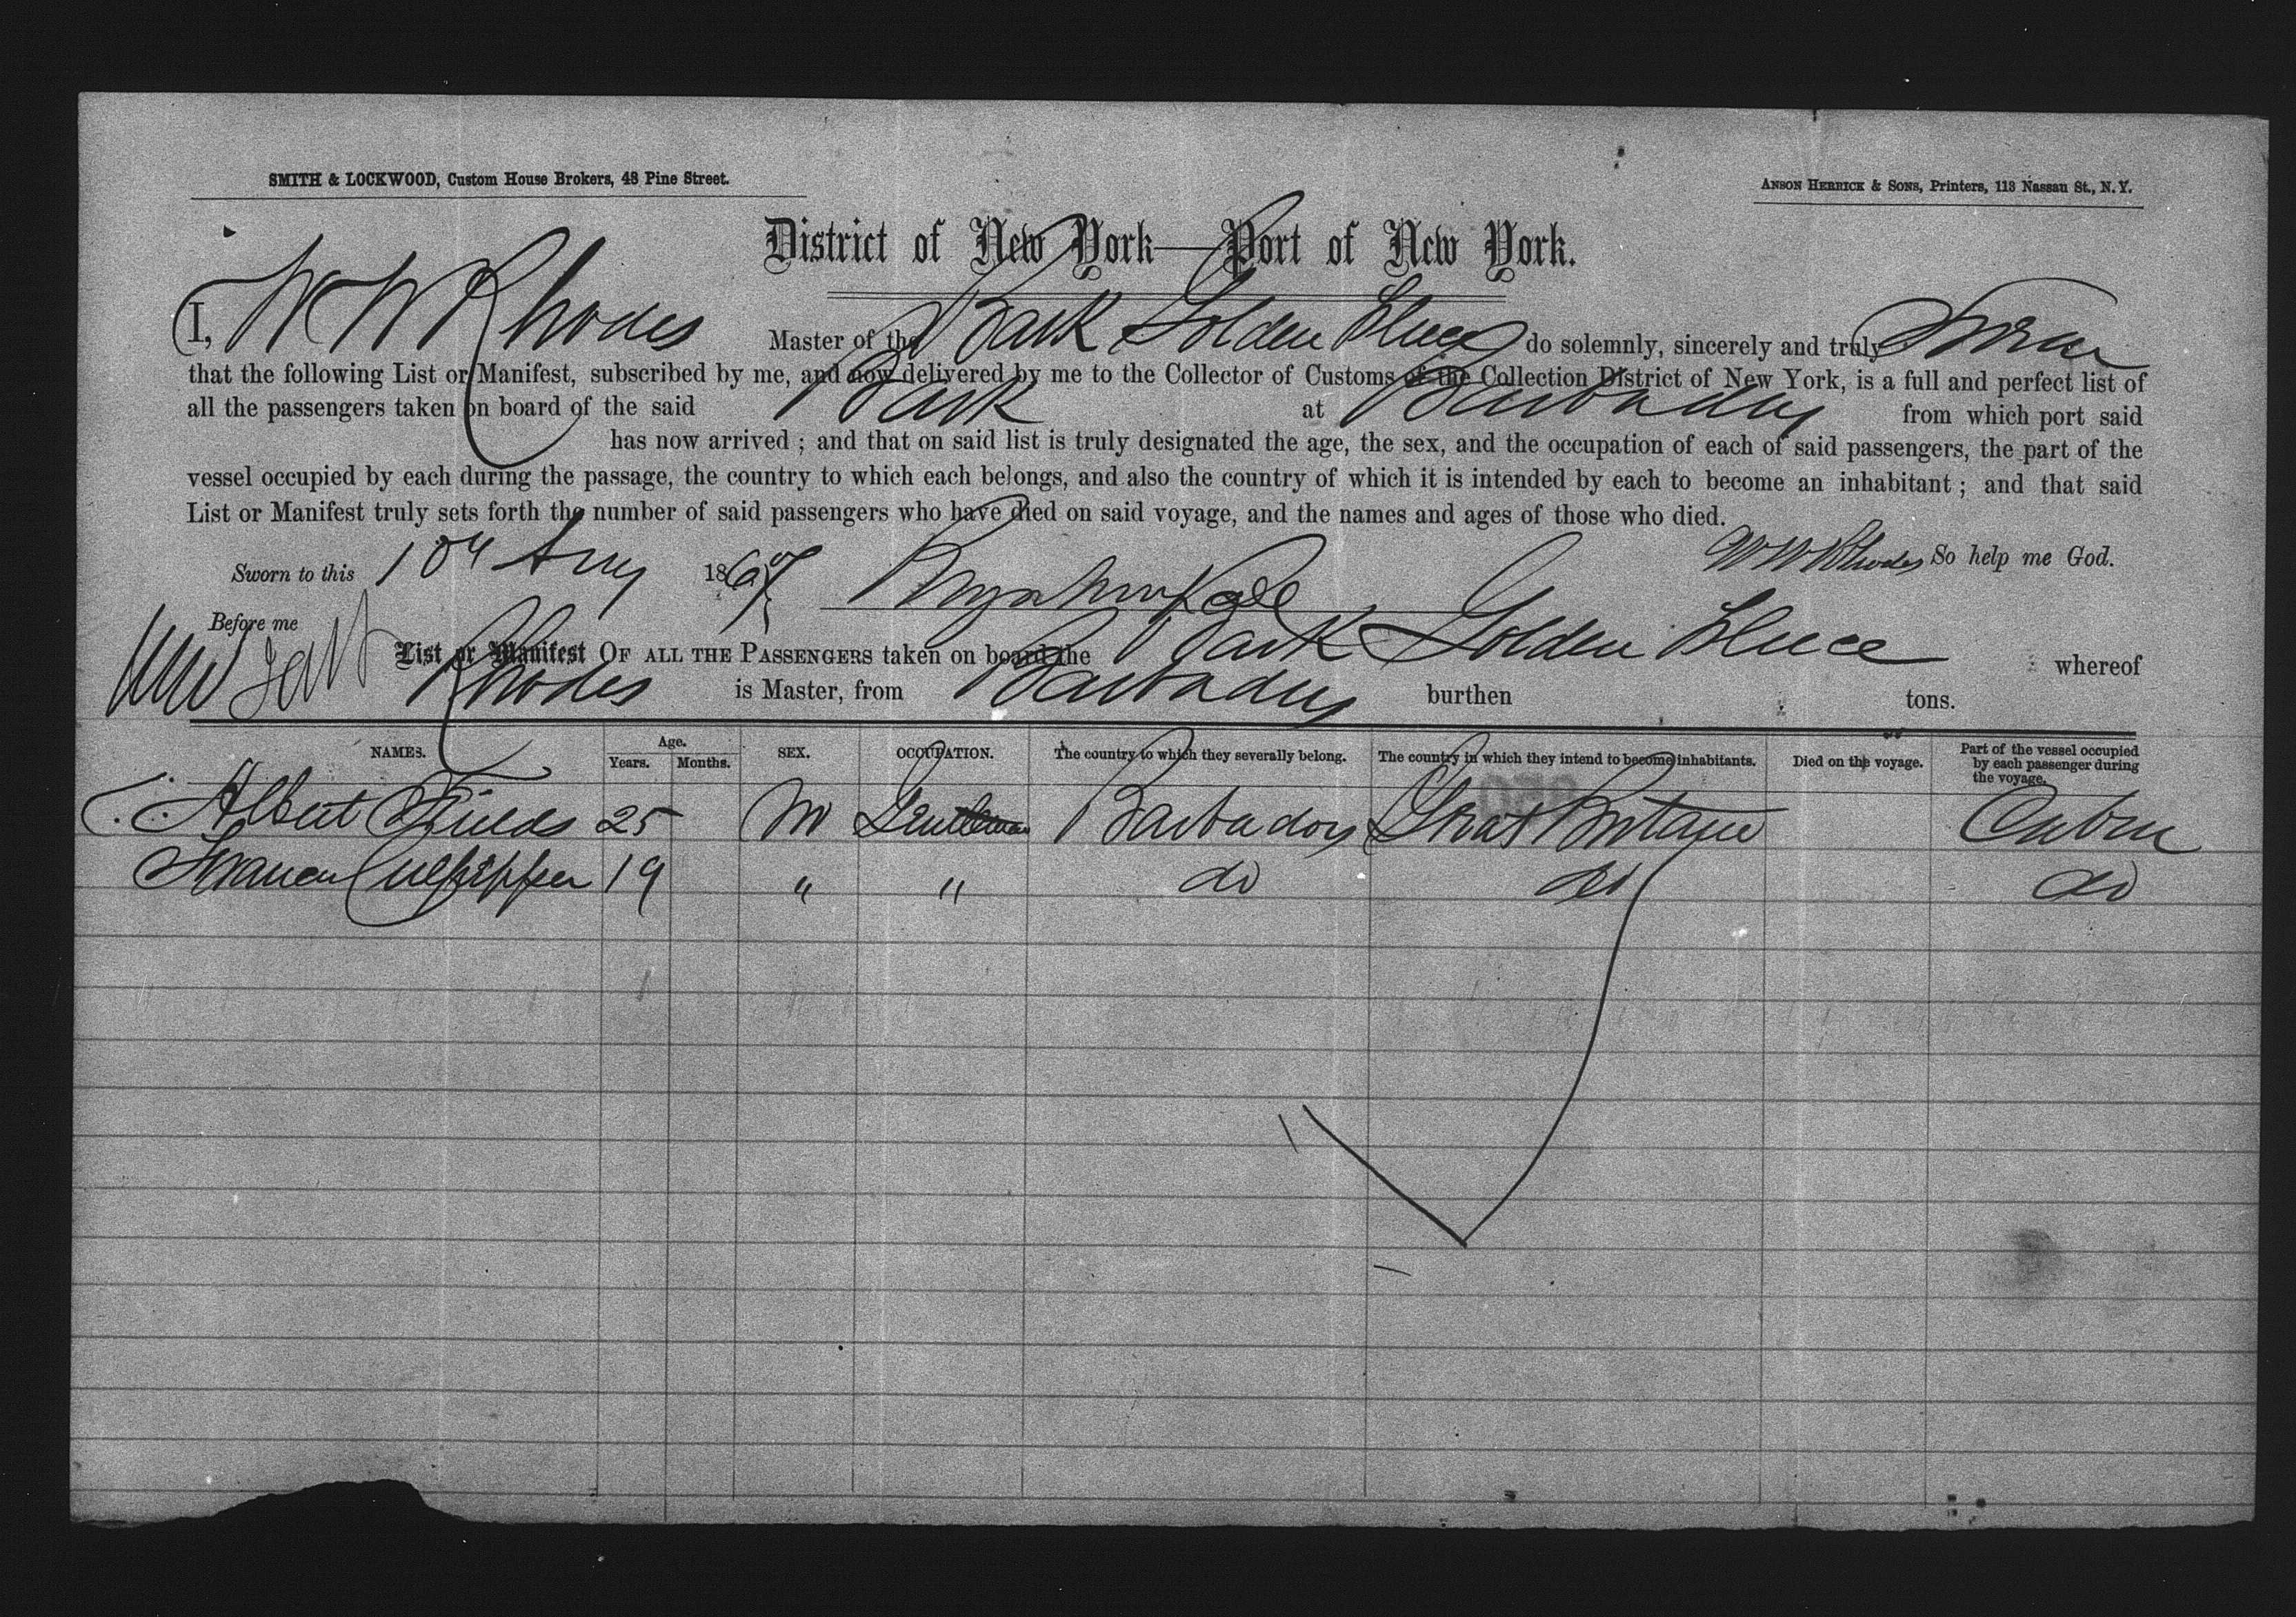 SMITH & LOCKWOOD, Custom House Brokers, 48 Pine Street.
ANSON HERRICK & SONS, Printers, 113 Nassau St., N.Y.
District of New York—Port of New York.
I, W W Rhodes Master of the Bark Golden Fleece do solemnly, sincerely and truly Swear
that the following List or Manifest, subscribed by me, and now delivered by me to the Collector of Customs of the Collection District of New York, is a full and perfect list of
all the passengers taken on board of the said Bark at Barbados from which port said
has now arrived ; and that on said list is truly designated the age, the sex, and the occupation of each of said passengers, the part of the
vessel occupied by each during the passage, the country to which each belongs, and also the country of which it is intended by each to become an inhabitant ; and that said
List or Manifest truly sets forth the number of said passengers who have died on said voyage, and the names and ages of those who died.
W W Rhodes So help me God.
Sworn to this 10th Aug 1867
Before me
List or Manifest OF ALL THE PASSENGERS taken on board the Bark Golden Fleece whereof
Rhodes is Master, from Barbados burthen tons.
NAMES. Age. Years. Months. SEX. OCCUPATION. The country to which they severally belong. The country in which they intend to become inhabitants. Died on the voyage. Part of the vessel occupied by each passenger during the voyage.
Albert Fields 25 M Gentleman Barbados Great Britain Cabin
Culpepper 19 " " do do do